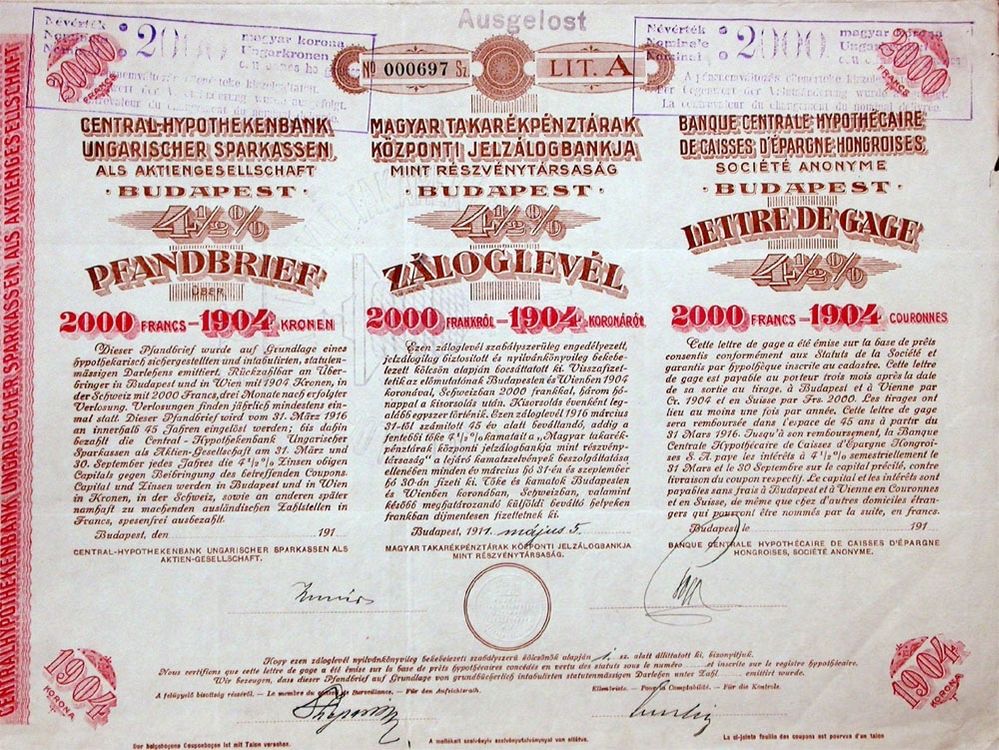 Ausgelost
Névérték
Nominale
Nominal
2000
magyar korona
Ungarkronen
Névérték
Nominale
Nominal
2000
magyar korona
2000
FRANCS
2000
FRANCS
Nº 000697 Sz.
LIT. A
CENTRAL-HYPOTHEKENBANK UNGARISCHER SPARKASSEN ALS AKTIENGESELLSCHAFT
CENTRAL-HYPOTHEKENBANK
UNGARISCHER SPARKASSEN
ALS AKTIENGESELLSCHAFT
· BUDAPEST ·
4½%
PFANDBRIEF
ÜBER
2000 FRANCS – 1904 KRONEN
Dieser Pfandbrief wurde auf Grundlage eines
hypothekarisch sichergestellten und intabulirten, statuten-
mässigen Darlehens emittiert. Rückzahlbar an Über-
bringer in Budapest und in Wien mit 1904 Kronen, in
der Schweiz mit 2000 Francs, drei Monate nach erfolgter
Verlosung. Verlosungen finden jährlich mindestens ein-
mal statt. Dieser Pfandbrief wird vom 31. März 1916
an innerhalb 45 Jahren eingelöst werden; bis dahin
bezahlt die Central - Hypothekenbank Ungarischer
Sparkassen als Aktien-Gesellschaft am 31. März und
30. September jedes Jahres die 4½% Zinsen obigen
Capitals gegen Beibringung des betreffenden Coupons.
Capital und Zinsen werden in Budapest und in Wien
in Kronen, in der Schweiz, sowie an anderen später
namhaft zu machenden ausländischen Zahlstellen in
Francs, spesenfrei ausbezahlt.
Budapest, den 191
CENTRAL-HYPOTHEKENBANK UNGARISCHER SPARKASSEN ALS
AKTIEN-GESELLSCHAFT.
MAGYAR TAKARÉKPÉNZTÁRAK
KÖZPONTI JELZÁLOGBANKJA
MINT RÉSZVÉNYTÁRSASÁG
· BUDAPEST ·
4½%
ZÁLOGLEVÉL
2000 FRANKRÓL – 1904 KORONÁRÓL
Ezen záloglevél szabályszerüleg engedélyezett,
jelzálogilag biztositott és nyilvánkönyvileg bekebe-
lezett kölcsön alapján bocsáttatott ki. Visszafizet-
tetik az előmutatónak Budapesten és Wienben 1904
koronával, Schweizban 2000 frankkal, három hó-
nappal a kisorsolás után. Kisorsolás évenként leg-
alább egyszer történik. Ezen záloglevél 1916 március
31-től számitott 45 év alatt beváltandó, addig a
fentebbi tőke 4½% kamatait a „Magyar takarék-
pénztárak központi jelzálogbankja mint részvény-
társaság" a lejáró kamatszelvények beszolgáltatása
ellenében minden év március hó 31-én és szeptember
hó 30-dn fizeti ki. Tőke és kamatok Budapesten
és Wienben koronában, Schweizban, valamint
később meghatározandó külföldi beváltó helyeken
frankban dijmentesen fizettetnek ki.
Budapest, 1911. május 5.
MAGYAR TAKARÉKPÉNZTÁRAK KÖZPONTI JELZÁLOGBANKJA
MINT RÉSZVÉNYTÁRSASÁG.
BANQUE CENTRALE HYPOTHÉCAIRE
DE CAISSES D'ÉPARGNE HONGROISES,
SOCIÉTÉ ANONYME
· BUDAPEST ·
LETTRE DE GAGE
4½%
2000 FRANCS – 1904 COURONNES
Cette lettre de gage a été émise sur la base de prêts
consentis conformément aux Statuts de la Société et
garantis par hypothèque inscrite au cadastre. Cette lettre
de gage est payable au porteur trois mois après la date
de sa sortie au tirage, à Budapest et à Vienne par
Cr. 1904 et en Suisse par Frs. 2000. Les tirages ont
lieu au moins une fois par année. Cette lettre de gage
sera remboursée dans l'espace de 45 ans à partir du
31 Mars 1916. Jusqu'à son remboursement, la Banque
Centrale Hypothécaire de Caisses d'Épargne Hongroi-
ses S. A. paye les intérêts à 4½% semestriellement le
31 Mars et le 30 Septembre sur le capital précité, contre
livraison du coupon respectif. Le capital et les intérêts sont
payables sans frais à Budapest et à Vienne en Couronnes
et en Suisse, de même que chez d'autres domiciles étran-
gers qui pourront être nommés par la suite, en francs.
Budapest, le 191
BANQUE CENTRALE HYPOTHÉCAIRE DE CAISSES D'ÉPARGNE
HONGROISES, SOCIÉTÉ ANONYME.
Hogy ezen záloglevél nyilvánkönyvileg bekebelezett szabályszerű kölcsönök alapján sz. alatt állittatott ki, bizonyitjuk.
Nous certifions que cette lettre de gage a été émise sur la base de prêts hypothécaires concédés en vertu des statuts sous le numéro et inscrite sur le registre hypothécaire.
Wir bezeugen, dass dieser Pfandbrief auf Grundlage von grundbücherlich intabulirten statutenmässigen Darlehen unter Zahl emittirt wurde.
A felügyelő bizottság részéről. – Le membre du conseil de Surveillance. – Für den Aufsichtsrath.
Ellenőrizte. – Pour la Comptabilité. – Für die Kontrole.
1904
KORONA
1904
KORONA
Der beigebogene Couponbogen ist mit Talon versehen.
A mellékelt szelvényiv szelvényutalványnyal van ellátva.
La ci-jointe feuille des coupons est pourvue d'un talon